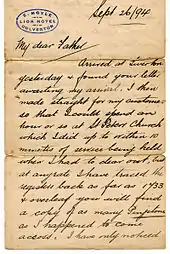 T. MOYLE
LION HOTEL
DULVERTON
Sept 26/94
My dear Father
Arrived at Tiverton
yesterday & found your letter
awaiting my arrival. I then
made straight for my customer
so that I could spend an
hour or so at St Peters Church
which I did up to within 10
minutes of service being held
when I had to clear out, but
at anyrate I have traced the
registers back as far as 1733
& overleaf you will find
a copy of as many
as I happened to come
across. I have only noticed